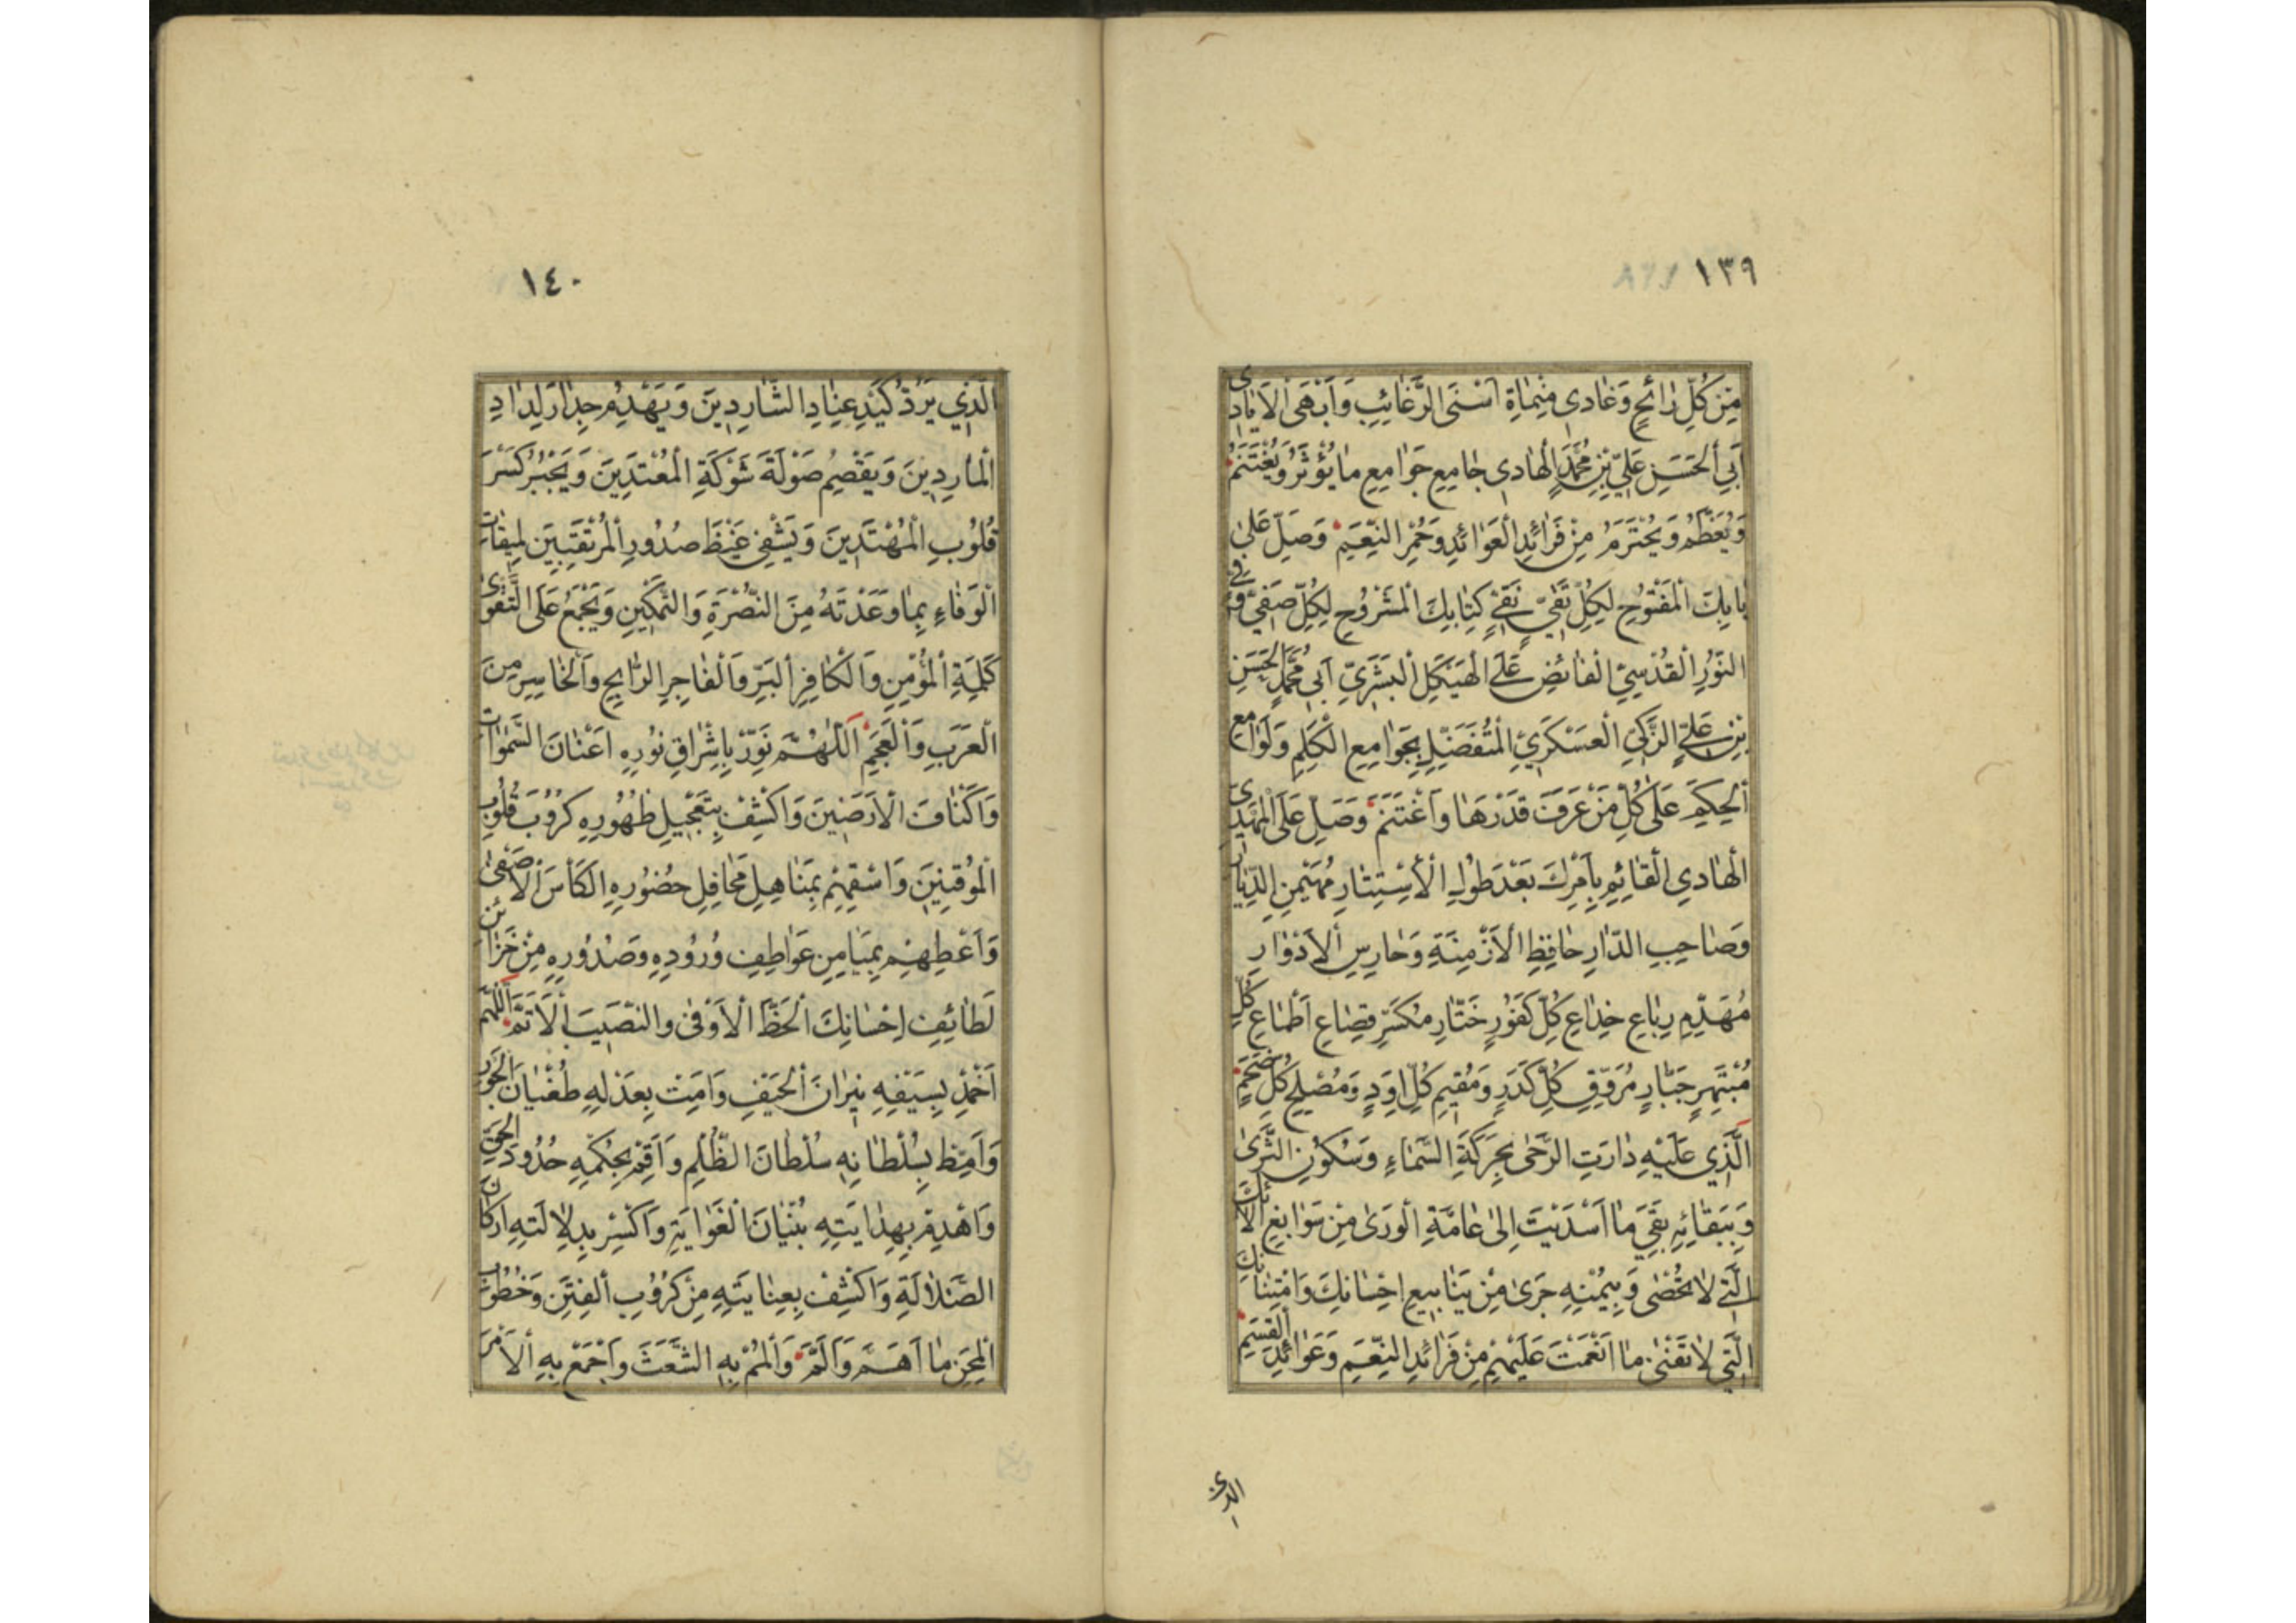 ١٣٩
مِنْ كُلِّ رٰائِحٍ وَغٰادِى مِنْمٰاةِ اَسْنَى الرَّغٰائِبِ وَاَبْهَى الْاَيٰادِى
اَبِي الْحَسَنِ عَلِيِّ بْنِ مُحَمَّدٍ الْهٰادِى جٰامِعِ جَوٰامِعِ مٰا يُؤْثَرُ وَيُغْتَنَمُ
وَيُعَظَّمُ وَيُحْتَرَمُ مِنْ فَرٰائِدِ الْعَوٰائِدِ وَحُمْرِ النِّعَمِ وَصَلِّ عَلىٰ
بٰابِكَ الْمَفْتُوحِ لِكُلِّ تَقِيٍّ نَقِيٍّ كِتٰابِكَ الْمَشْرُوحِ لِكُلِّ صَفِيٍّ وَفِيٍّ
النُّورِ الْقُدْسِيِّ الْفٰائِضِ عَلَى الْهَيْكَلِ الْبَشَرِيِّ اَبِي مُحَمَّدٍ الْحَسَنِ
بْنِ عَلِيٍّ الزَّكِيِّ الْعَسْكَرِيِّ الْمُتَفَضِّلِ بِجَوٰامِعِ الْكَلِمِ وَلَوٰامِعِ
الْحِكَمِ عَلىٰ كُلِّ مَنْ عَرَفَ قَدْرَهٰا وَاغْتَنَمَ وَصَلِّ عَلَى الْمَهْدِيِّ
الْهٰادِي الْقٰائِمِ بِاَمْرِكَ بَعْدَ طُولِ الْاِسْتِتٰارِ مُهَيْمِنِ الدِّيٰارِ
وَصٰاحِبِ الدّٰارِ حٰافِظِ الْاَزْمِنَةِ وَحٰارِسِ الْاَدْوٰارِ
مُهَدِّمِ رِبٰاعِ خِدٰاعِ كُلِّ كَفُورٍ خَتّٰارِ مُكَسِّرِ قِصٰاعِ اَطْمٰاعِ كُلِّ
مُبْتَهِرٍ جَبّٰارٍ مُرَوِّقِ كُلِّ كَدَرٍ وَمُقِيمِ كُلِّ اَوَدٍ وَمُصْلِحِ كُلِّ ضَخَمٍ
الَّذِي عَلَيْهِ دٰارَتِ الرَّحىٰ بِحَرَكَةِ السَّمٰاءِ وَسُكُونِ الثَّرىٰ
وَبِبَقٰائِهِ بَقِيَ مٰا اَسْدَيْتَ اِلىٰ عٰامَّةِ الْوَرىٰ مِنْ سَوٰابِغِ الٰائِكَ
الَّتِي لٰا تُحْصىٰ وَبِيُمْنِهِ جَرىٰ مِنْ يَنٰابِيعِ اِحْسٰانِكَ وَامْتِنٰانِكَ
الَّتِي لٰا تَفْنىٰ مٰا اَنْعَمْتَ عَلَيْهِمْ مِنْ فَرٰائِدِ النِّعَمِ وَعَوٰائِدِ الْقِسَمِ
الذى
١٤٠
الَّذِي يَرُدُّ كَيْدَ عِنٰادِ الشّٰارِدِينَ وَيَهْدِمُ جِدٰارَ لِدٰادِ
الْمٰارِدِينَ وَيَقْصِمُ صَوْلَةَ شَوْكَةِ الْمُعْتَدِينَ وَيَجْبُرُ كَسْرَ
قُلُوبِ الْمُهْتَدِينَ وَيَشْفِي غَيْظَ صُدُورِ الْمُرْتَقِبِينَ لِمِيقٰاتِ
الْوَفٰاءِ بِمٰا وَعَدْتَهُ مِنَ النُّصْرَةِ وَالتَّمْكِينِ وَيَجْمَعُ عَلَى التَّقْوىٰ
كَلِمَةَ الْمُؤْمِنِ وَالْكٰافِرِ الْبَرِّ وَالْفٰاجِرِ الرّٰابِحِ وَالْخٰاسِرِ مِنَ
الْعَرَبِ وَالْعَجَمِ اَللّٰهُمَّ نَوِّرْ بِاِشْرٰاقِ نُورِهِ اَعْنٰانَ السَّمٰوٰاتِ
وَاَكْنٰافَ الْاَرَضِينَ وَاكْشِفْ بِتَعْجِيلِ ظُهُورِهِ كُرُوبَ قُلُوبِ
الْمُوقِنِينَ وَاسْقِهِمْ بِمَنٰاهِلِ مَحٰافِلِ حُضُورِهِ الْكَأْسَ الْاَصْفىٰ
وَاَعْطِهِمْ بِمَيٰامِنِ عَوٰاطِفِ وُرُودِهِ وَصُدُورِهِ مِنْ خَزٰائِنِ
لَطٰائِفِ اِحْسٰانِكَ الْحَظَّ الْاَوْفىٰ وَالنَّصِيبَ الْاَتَمَّ اَللّٰهُمَّ
اَخْمِدْ بِسَيْفِهِ نِيرٰانَ الْحَيْفِ وَاَمِتْ بِعَدْلِهِ طُغْيٰانَ الْجَوْرِ
وَاَمِطْ بِسُلْطٰانِهِ سُلْطٰانَ الظُّلْمِ وَاَقِمْ بِحُكْمِهِ حُدُودَ الْحَقِّ
وَاهْدِمْ بِهِدٰايَتِهِ بُنْيٰانَ الْغَوٰايَةِ وَاكْسِرْ بِدِلٰالَتِهِ اَرْكٰانَ
الضَّلٰالَةِ وَاكْشِفْ بِعِنٰايَتِهِ مِنْ كُرُوبِ الْفِتَنِ وَخُطُوبِ
الْمِحَنِ مٰا اَهَمَّ وَاَلَمَّ وَالْمُمْ بِهِ الشَّعَثَ وَاجْمَعْ بِهِ الْاَمْرَ